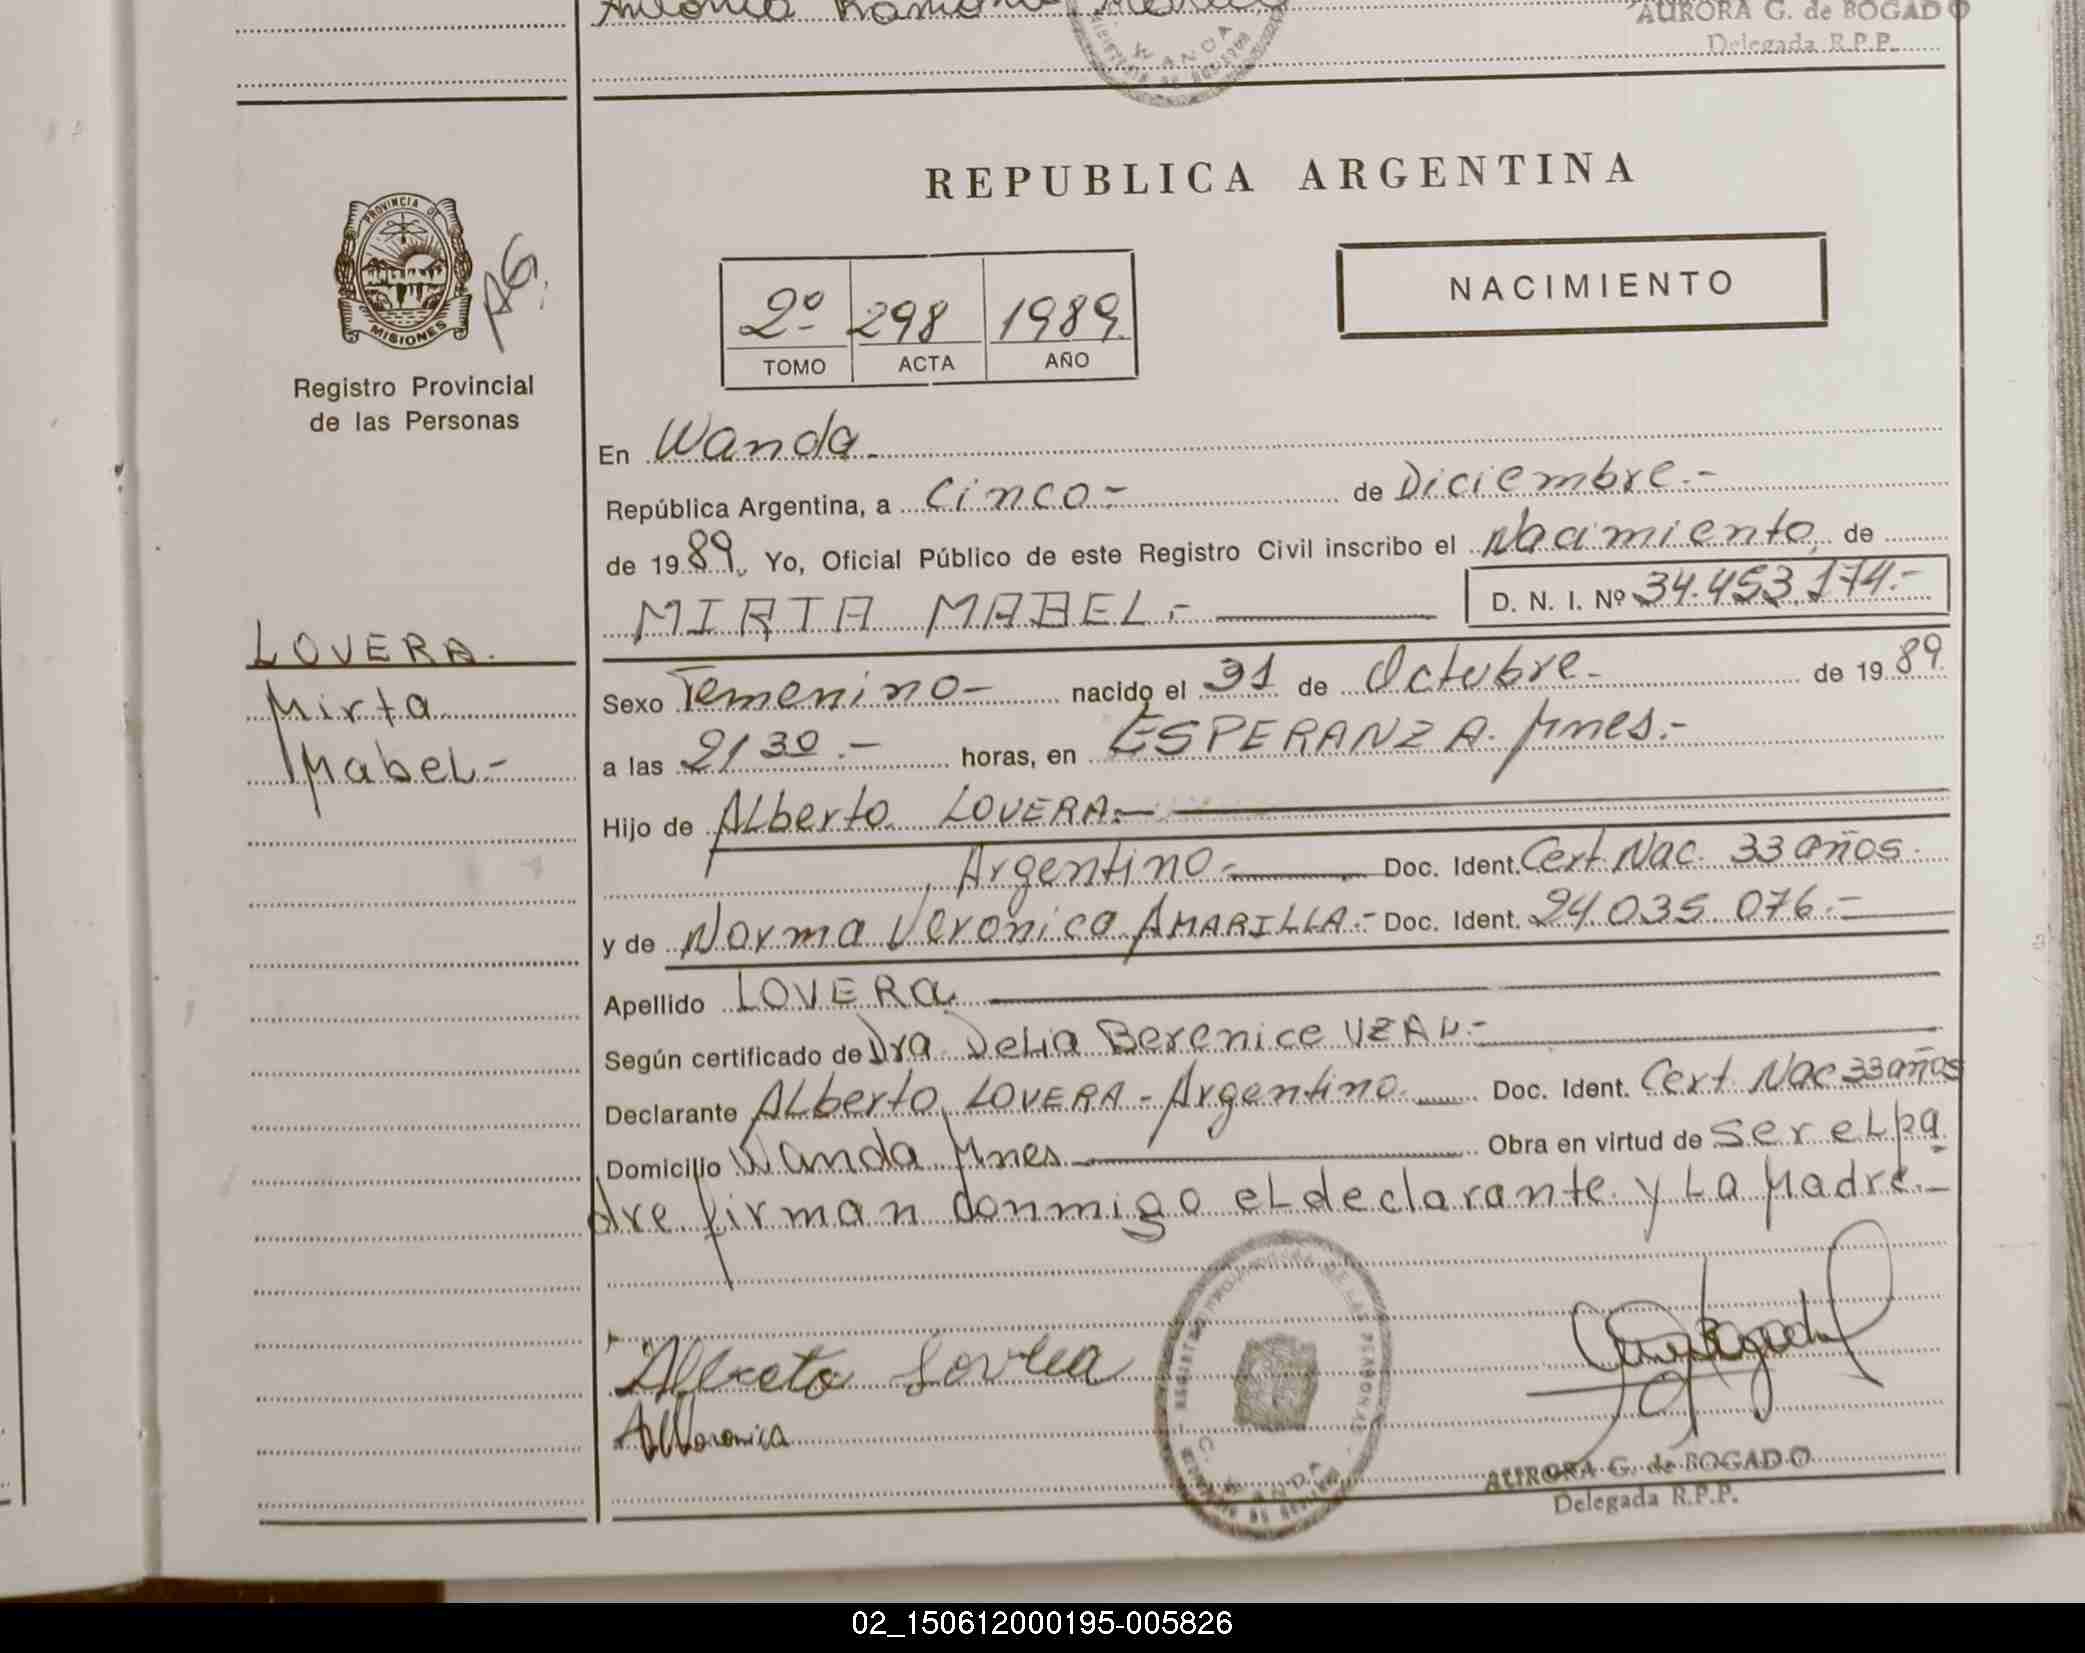 AURORA G. de BOGADO
Delegada R.P.P.
PROVINCIA DE
MISIONES
AG.
Registro Provincial
de las Personas
REPUBLICA ARGENTINA
2º 298 1989.
TOMO ACTA AÑO
NACIMIENTO
En Wanda.
República Argentina, a Cinco.- de Diciembre.-
de 1989. Yo, Oficial Público de este Registro Civil inscribo el Nacimiento, de
MIRTA MABEL.- D. N. I. Nº 34.453.174.-
LOVERA.
Mirta
Mabel-
Sexo Femenino- nacido el 31 de Octubre.- de 1989.
a las 2130.- horas, en ESPERANZA. Mnes.-
Hijo de Alberto LOVERA.-
Argentino.- Doc. Ident. Cert. Nac. 33 años.
y de Norma Veronica AMARILLA.- Doc. Ident. 24.035.076.-
Apellido LOVERA
Según certificado de Dra. Delia Berenice UZAL.-
Declarante Alberto LOVERA - Argentino. Doc. Ident. Cert. Nac 33 años
Domicilio Wanda Mnes Obra en virtud de ser el pa
dre firman conmigo el declarante y la Madre.-
Alberto Lovera
A Veronica
AURORA G. de BOGADO
Delegada R.P.P.
02_150612000195-005826